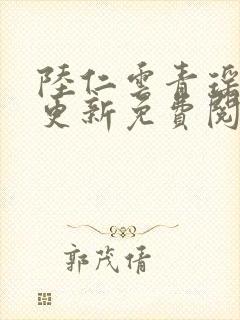 陸仁雲青瑶
更新免費閱
郭茂倩